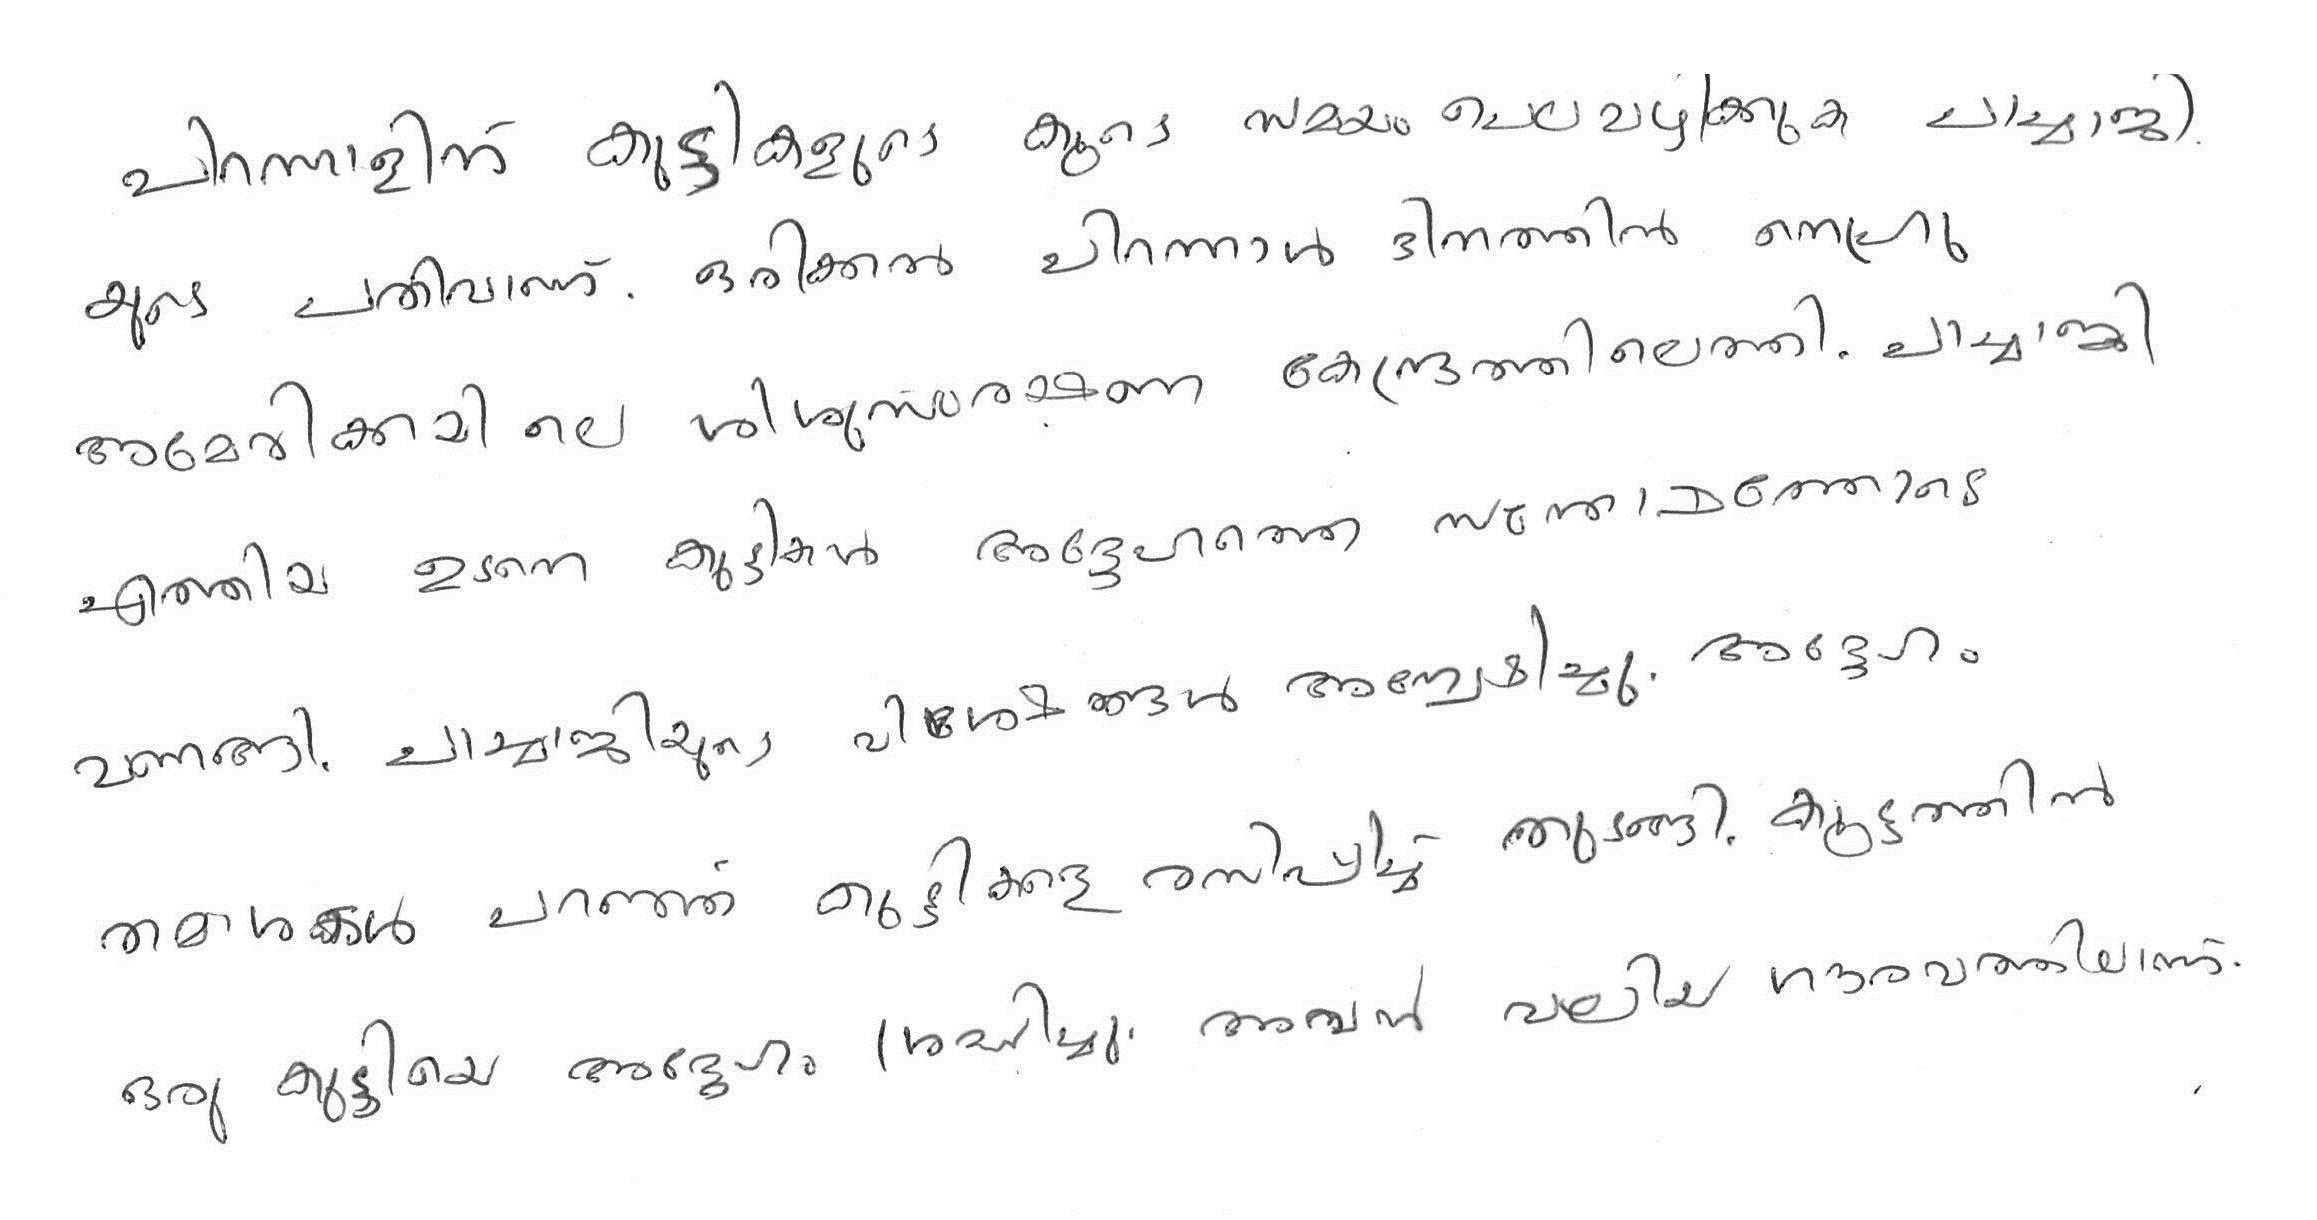 പിറന്നാളിന് കുട്ടികളുടെ കൂടെ സമയം ചെലവഴിക്കുക ചാച്ചാജി
യുടെ പതിവാണ്. ഒരിക്കൽ പിറന്നാൾ ദിനത്തിൽ നെഹ്രു
അമേരിക്കയിലെ ശിശുസംരക്ഷണ കേന്ദ്രത്തിലെത്തി. ചാച്ചാജി
എത്തിയ ഉടനെ കുട്ടികൾ അദ്ദേഹത്തെ സന്തോഷത്തോടെ
വണങ്ങി. ചാച്ചാജിയുടെ വിശേഷങ്ങൾ അന്വേഷിച്ചു. അദ്ദേഹം
തമാശകൾ പറഞ്ഞ് കുട്ടികളെ രസിപ്പിച്ച് തുടങ്ങി. കൂട്ടത്തിൽ
ഒരു കുട്ടിയെ അദ്ദേഹം ശ്രദ്ധിച്ചു. അവൻ വലിയ ഗൗരവത്തിലാണ്.